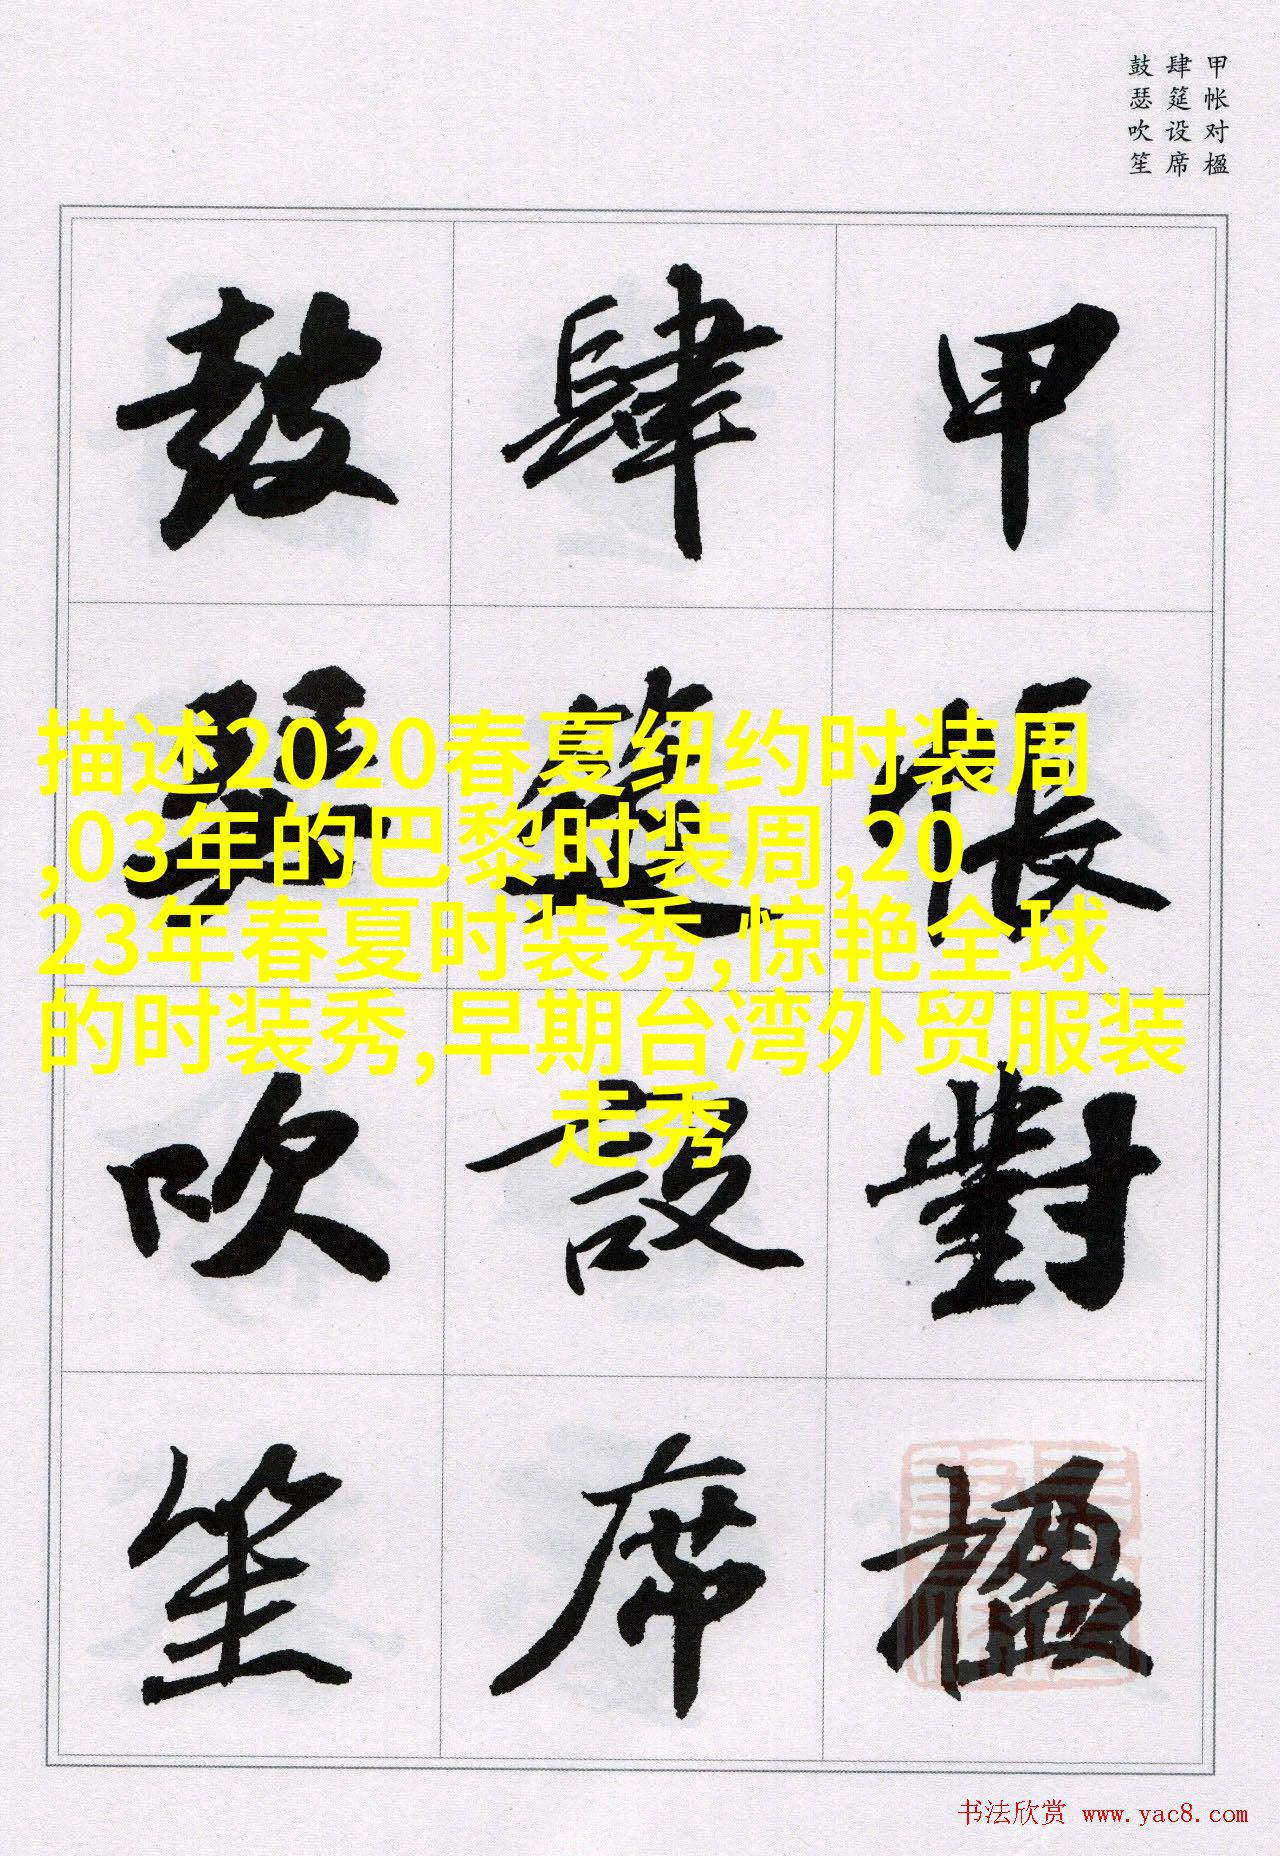 甲帐对楹
肆筵设席
鼓瑟吹笙
甲帳對楹
肆筵設席
鼓瑟吹笙
描述2020春夏纽约时装周
,03年的巴黎时装周,20
23年春夏时装秀,惊艳全球
的时装秀,早期台湾外贸服装
走秀
书法欣赏 www.yac8.com